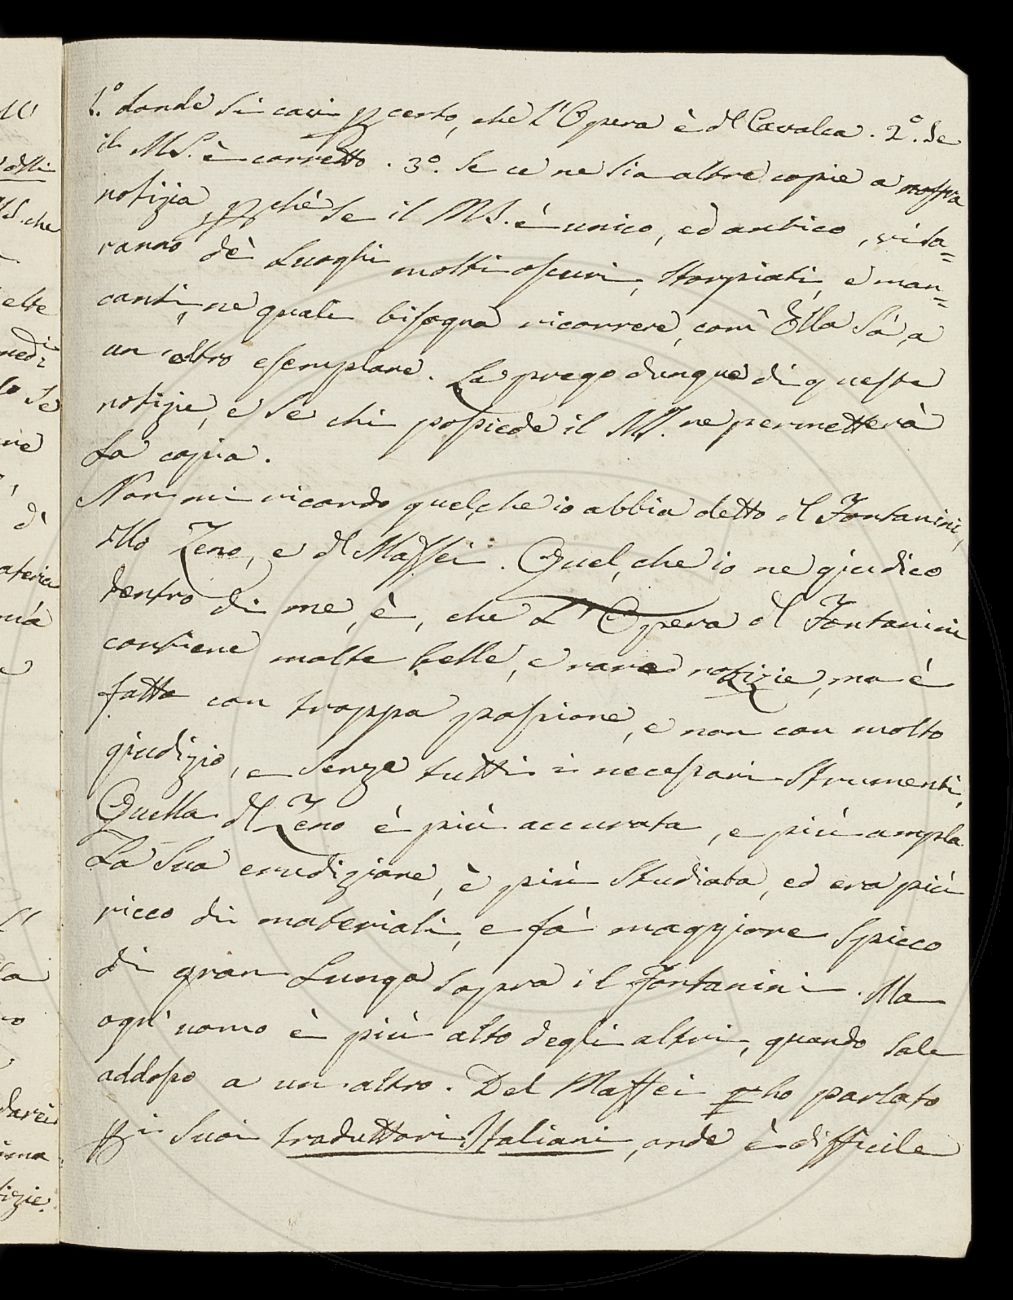 1.° donde si cavi p certo, che l'Opera è dl Cavalca. 2.° Se
il MS. è corretto. 3.° Se ce ne sia altre copie a nostra
notizia p chè se il MS. è unico, ed antico, vi sa=
ranno dè luoghi molti oscuri, storpiati, e man=
canti, ne quali bisogna ricorrere, com' Ella sà, a
un altro esemplare. La prego dunque di queste
notizie, e se chi possiede il MS. ne permetterà
la copia.
Non mi ricordo quel, che io abbia detto dl Fontanini,
dllo Zeno, e dl Maffei. Quel, che io ne giudico
dentro di me, è, che l'Opera dl Fontanini
contiene molte belle, e rare notizie, ma è
fatta con troppa passione, e non con molto
giudizio, e senza tutti i necessari strumenti.
Quella dl Zeno è più accurata, e più ampla.
La sua erudizione, è più studiata, ed era più
ricco di materiali, e fà maggiore spicco
di gran lunga sopra il Fontanini. Ma
ogn' uomo è più alto degli altri, quando sale
addosso a un altro. Del Maffei ho parlato
p i suoi traduttori Italiani, onde è difficile